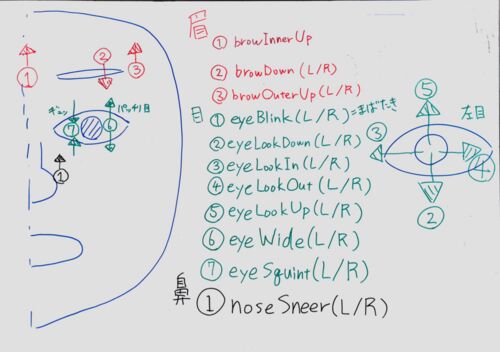 眉
① browInnerUp
② browDown (L/R)
③ browOuterUp (L/R)
目
① eyeBlink (L/R)=まばたき
② eyeLookDown (L/R)
③ eyeLookIn (L/R)
④ eyeLookOut (L/R)
⑤ eyeLookUp (L/R)
⑥ eyeWide (L/R)
⑦ eyeSquint (L/R)
鼻
① noseSneer (L/R)
①
②
③
ギュッ
パッチリ目
⑦
⑥
①
左目
⑤
③
④
②